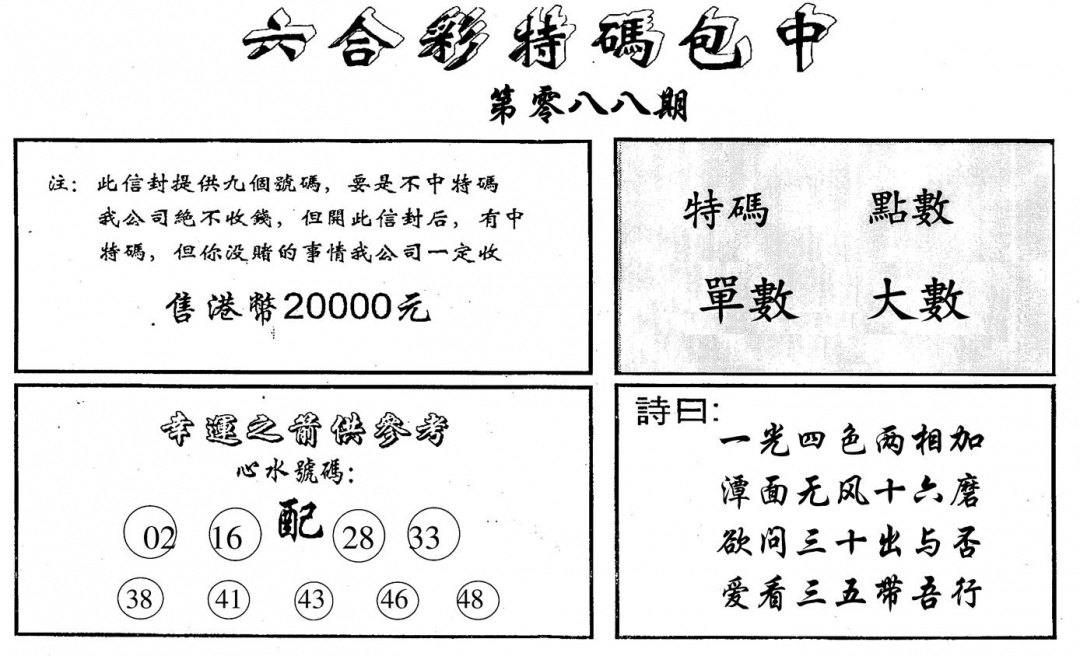 六合彩特碼包中
第零八八期
注：此信封提供九個號碼，要是不中特碼
我公司絶不收錢，但開此信封后，有中
特碼，但你没賭的事情我公司一定收
售港幣20000元
特碼 點數
單數 大數
幸運之箭供參考
心水號碼：
配
02 16 28 33
38 41 43 46 48
詩曰：
一光四色两相加
潭面无风十六磨
欲问三十出与否
爱看三五带吾行